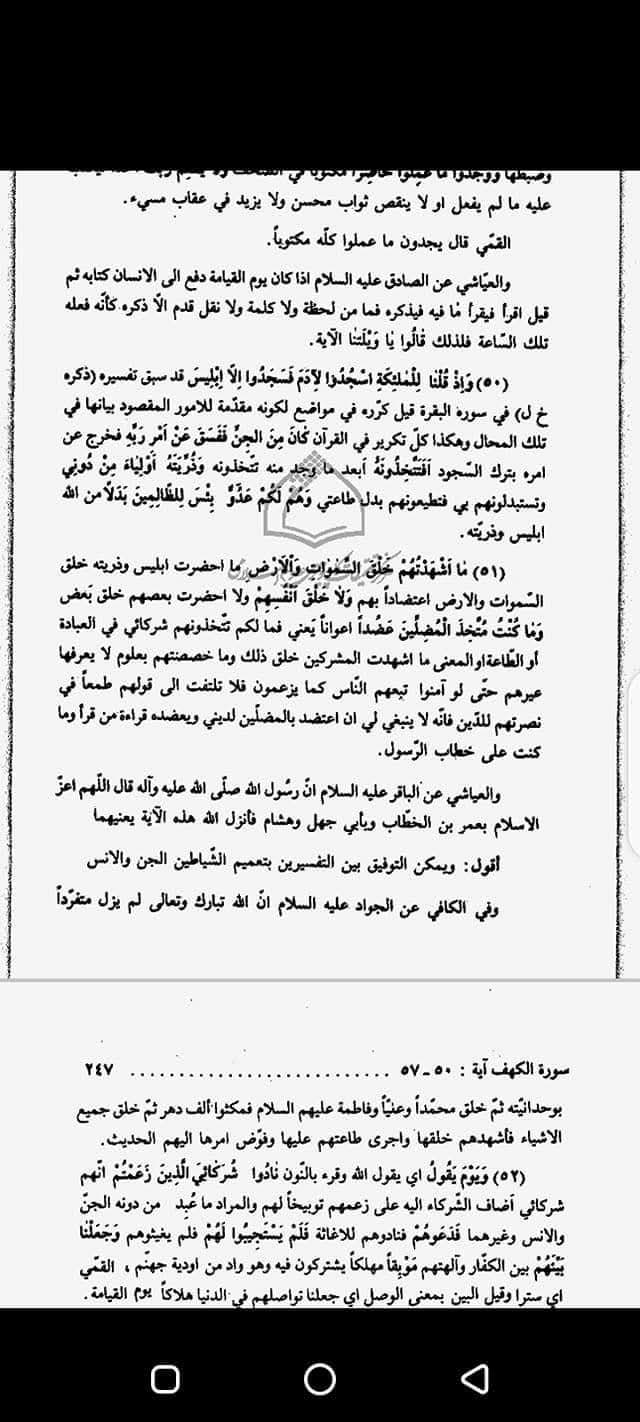 وضبطها ووجدوا ما عملوا حاضراً مكتوباً في الصحف ولا يظلم ربك
عليه ما لم يفعل او لا ينقص ثواب محسن ولا يزيد في عقاب مسيء.
القمّي قال يجدون ما عملوا كلّه مكتوباً.
والعيّاشي عن الصادق عليه السلام اذا كان يوم القيامة دفع الى الانسان كتابه ثم
قيل اقرأ فيقرأ مٰا فيه فيذكره فما من لحظة ولا كلمة ولا نقل قدم الّا ذكره كأنّه فعله
تلك السّاعة فلذلك قٰالُوا يٰا وَيْلَتَنٰا الآية.
(٥٠) وَإِذْ قُلْنٰا لِلْمَلٰئِكَةِ اسْجُدُوٓا لِآدَمَ فَسَجَدُوا إلّا إبْلِيسَ قد سبق تفسيره (ذكره
خ ل) في سوره البقرة قيل كرّره في مواضع لكونه مقدّمة للامور المقصود بيانها في
تلك المحال وهكذا كلّ تكرير في القرآن كٰانَ مِنَ الجِنِّ فَفَسَقَ عَنْ أمْرِ رَبِّهِ فخرج عن
امره بترك السّجود أفَتَتَّخِذُونَهُ أبعد ما وجد منه تتّخذونه وَذُرِّيَّتَهُ أوْلِيٰاءَ مِنْ دُونِي
وتستبدلونهم بي فتطيعونهم بدل طاعتي وَهُمْ لَكُمْ عَدُوٌّ بِئْسَ لِلظّٰالِمِينَ بَدَلًا من الله
ابليس وذريّته.
(٥١) مٰا أشْهَدْتُهُمْ خَلْقَ السَّمٰوٰاتِ وَالْأرْضِ ما احضرت ابليس وذريته خلق
السّموات والارض اعتضاداً بهم وَلٰا خَلْقَ أنْفُسِهِمْ ولا احضرت بعصهم خلق بَعض
وَمٰا كُنْتُ مُتَّخِذَ الْمُضِلِّينَ عَضُداً اعواناً يَعني فما لكم تتّخذونهم شركائي في العبادة
أو الطّاعة او المعنى ما اشهدت المشركين خلق ذلك وما خصصتهم بعلوم لا يعرفها
عيرهم حتّى لو آمنوا تبعهم النّاس كما يزعمون فلا تلتفت الى قولهم طمعاً في
نصرتهم للدّين فانّه لا ينبغي لي ان اعتضد بالمضلّين لديني ويعضده قراءة من قرأ وما
كنت على خطاب الرّسول.
والعياشي عن الباقر عليه السلام انّ رسُول الله صلّى الله عليه وآله قال اللّهم اعزّ
الاسلام بعمر بن الخطّاب وبأبي جهل وهشام فأنزل الله هذه الآيَة يعنيهما
أقول: ويمكن التوفيق بين التفسيرين بتعميم الشّياطين الجن والانس
وفي الكافي عن الجواد عليه السلام انّ الله تبارك وتعالى لم يزل متفرّداً
سورة الكهف آية : ٥٠ ـ ٥٧ .......................... ٢٤٧
بوحدانيّته ثمّ خلق محمّداً وعليّاً وفاطمة عليهم السلام فمكثوا ألف دهر ثمّ خلق جميع
الاشياء فأشهدهم خلقها واجرى طاعتهم عليها وفوّض امرها اليهم الحديث.
(٥٢) وَيَوْمَ يَقُولُ اي يقول الله وقرء بالنّون نٰادُوا شُرَكٰائِيَ الَّذِينَ زَعَمْتُمْ انّهم
شركائي أضاف الشّركاء اليه على زعمهم توبيخاً لهم والمراد ما عُبِد من دونه الجنّ
والانس وغيرهما فَدَعَوْهُمْ فنادوهم للاغاثة فَلَمْ يَسْتَجِيبُوا لَهُمْ فلم يغيثوهم وَجَعَلْنٰا
بَيْنَهُمْ بين الكفّار وآلهتهم مَوْبِقاً مهلكاً يشتركون فيه وهو واد من اودية جهنّم ، القمّي
اي سترا وقيل البين بمعنى الوصل اي جعلنا تواصلهم في الدنيا هلاكاً يوم القيامة.